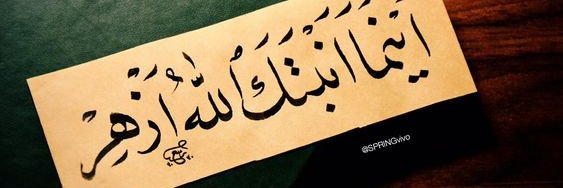 اَينَما اَنبَتَكَ اللّٰهُ اُزهِر
@SPRINGvivo